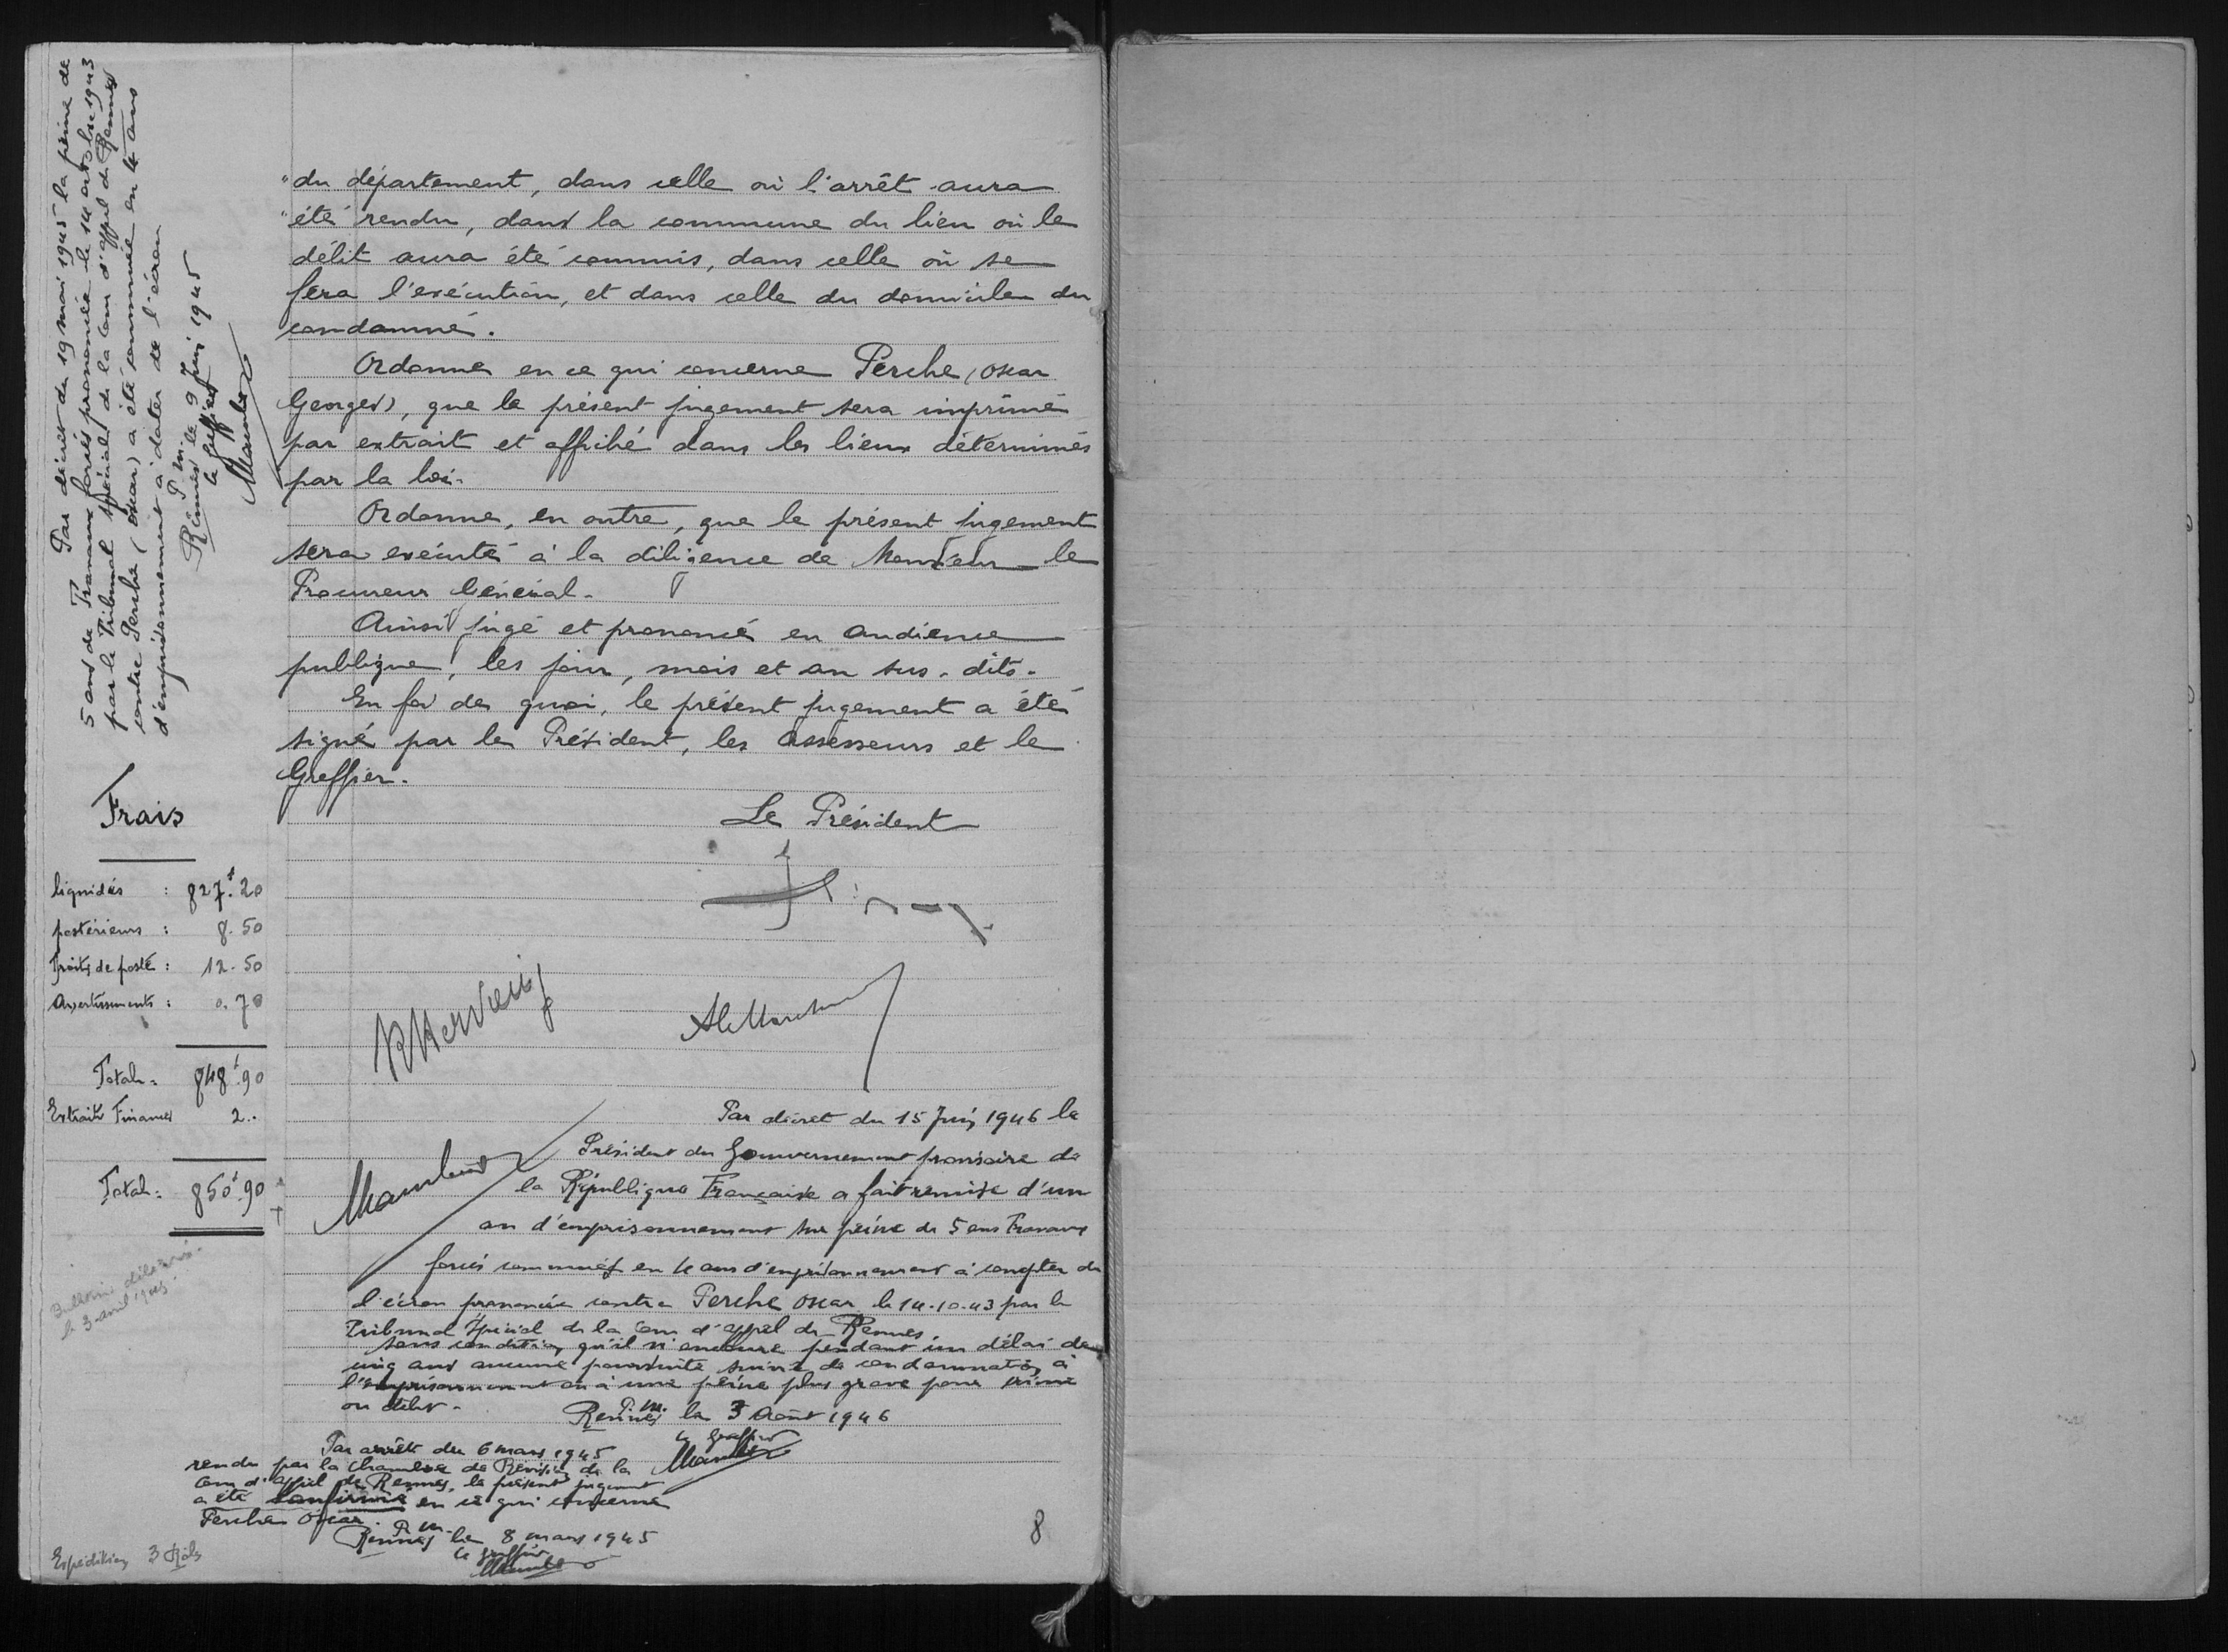 Par décret du 19 mai 1945 la peine de
5 ans de Travaux forcés prononcée le 14 octobre 1943
par le Tribunal spécial de la Cour d'appel de Rennes
contre Perche (Oscar) a été commuée en 4 ans
d'emprisonnement à dater de l'écrou
P. m.
Rennes le 9 Juin 1945
le Greffier
"du département, dans celle où l'arrêt aura
"été rendu, dans la commune du lieu où le
délit aura été commis, dans celle où se
fera l'exécution, et dans celle du domicile du
condamné.
Ordonne en ce qui concerne Perche (Oscar
Georges), que le présent jugement sera imprimé
par extrait et affiché dans les lieux déterminés
par la loi.
Ordonne, en outre, que le présent jugement
sera exécuté à la diligence de Monsieur le
Procureur Général.
Ainsi jugé et prononcé en audience
publique, les jour, mois et an sus-dits.
En foi de quoi, le présent jugement a été
signé par le Président, les assesseurs et le
Greffier.
Le Président
Frais
liquidés : 827f.20
postérieurs : 8.50
Droits de poste : 12.50
Avertissements : 0.70
Total = 848f.90
Extrait Finances 2..
Total = 850f.90
Bulletin délivré
le 3 avril 1945
Par décret du 15 Juin 1946 le
Président du Gouvernement provisoire de
la République Française a fait remise d'un
an d'emprisonnement sur peine de 5 ans Travaux
forcés commués en 4 ans d'emprisonnement à compter de
l'écrou prononcée contre Perche Oscar le 14.10.43 par le
Tribunal Spécial de la Cour d'appel de Rennes,
sous condition qu'il n'encoure pendant un délai de
cinq ans aucune poursuite suivie de condamnation à
l'emprisonnement ou à une peine plus grave pour crime
ou délit.
P. m.
Rennes le 3 Août 1946
le Greffier
Par arrêt du 6 mars 1945
rendu par la Chambre de Révision de la
Cour d'appel de Rennes, le présent jugement
a été confirmé en ce qui concerne
Perche Oscar.
P. m.
Rennes le 8 mars 1945
le greffier
Expédition 3 Rôles
8